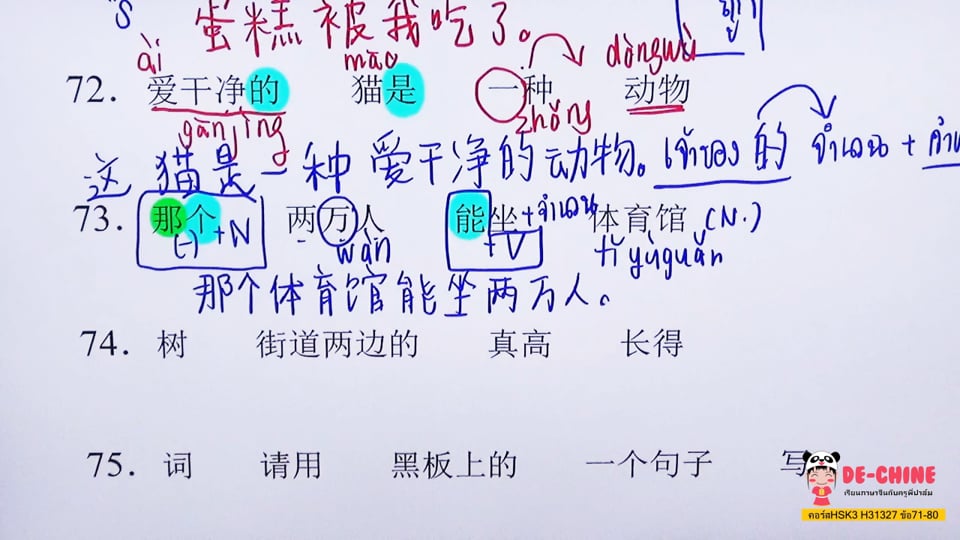 蛋糕被我吃了。
ài māo dòngwù
72. 爱干净的 猫是 一种 动物
gānjìng zhǒng
这 猫是一种爱干净的动物。 เจ้าของ 的 จำนวน +
73. 那个 两万人 能坐 +จำนวน 体育馆 (N.)
(-) +N wàn +V tǐyùguǎn
那个体育馆能坐两万人。
74. 树 街道两边的 真高 长得
75. 词 请用 黑板上的 一个句子 写
DE-CHINE
เรียนภาษาจีนกับครูพี่ปาล์ม
คอร์สHSK3 H31327 ข้อ71-80